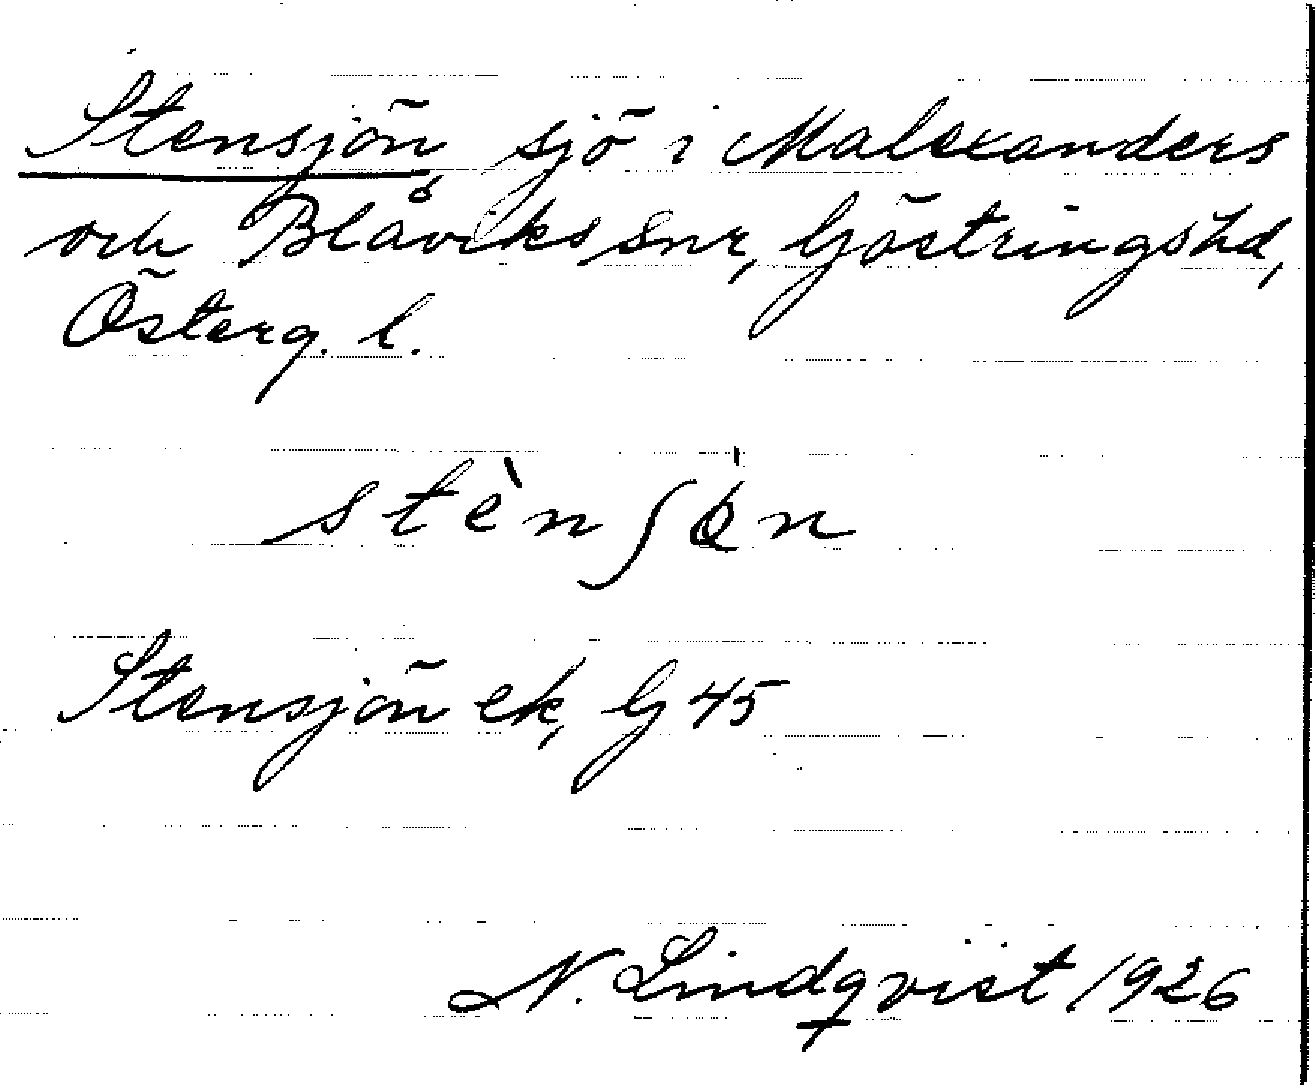 Stensjön, sjö i Malexanders
och Blåviks snr, Göstringshd,
Österg. l.
stènʃø̀n
Stensjön ek, G 45
N. Lindqvist 1926